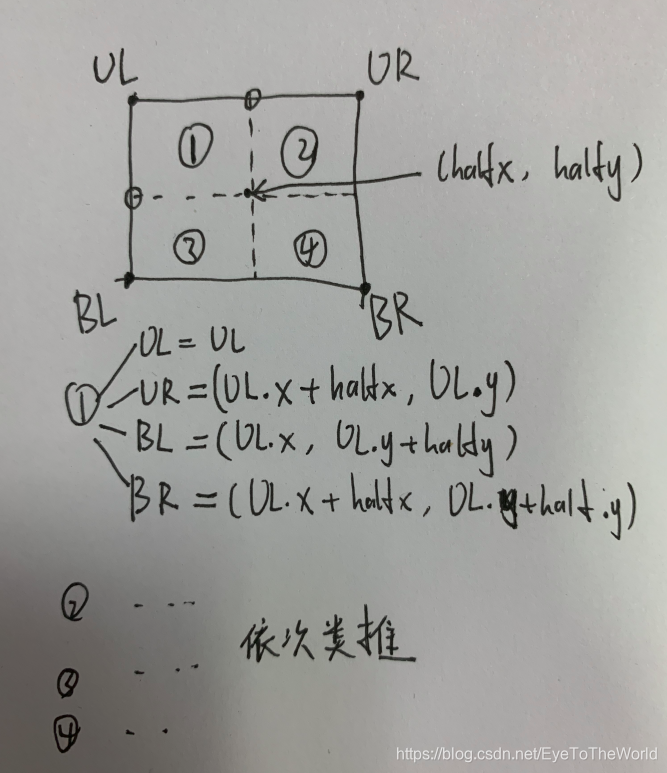 UL UR
① ②
(halfx, halfy)
③ ④
BL BR
① UL = UL
UR = (UL.x + halfx, UL.y)
BL = (UL.x, UL.y + halfy)
BR = (UL.x + halfx, UL.y + half.y)
② - - - -
③ - - -
④ - - -
依次类推
https://blog.csdn.net/EyeToTheWorld